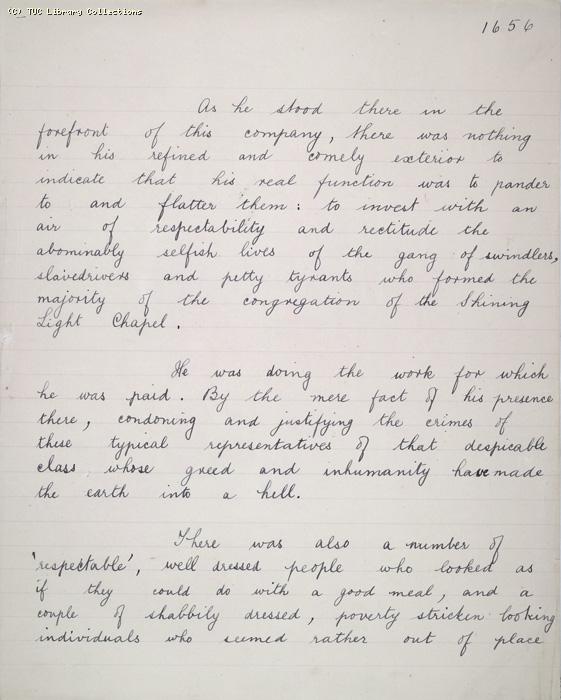 (C) TUC Library Collections
1656
As he stood there in the
forefront of this company, there was nothing
in his refined and comely exterior to
indicate that his real function was to pander
to and flatter them: to invest with an
air of respectability and rectitude the
abominably selfish lives of the gang of swindlers,
slavedrivers and petty tyrants who formed the
majority of the congregation of the Shining
Light Chapel.
He was doing the work for which
he was paid. By the mere fact of his presence
there, condoning and justifying the crimes of
these typical representatives of that despicable
class whose greed and inhumanity have made
the earth into a hell.
There was also a number of
'respectable', well dressed people who looked as
if they could do with a good meal, and a
couple of shabbily dressed, poverty stricken looking
individuals who seemed rather out of place